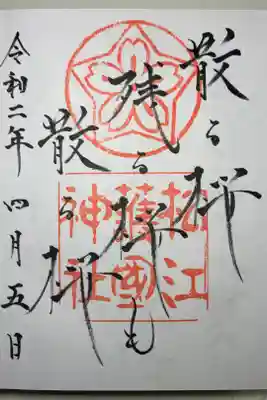 散る桜
残る桜も
散る桜
松江
護國
神社
令和二年 四月五日